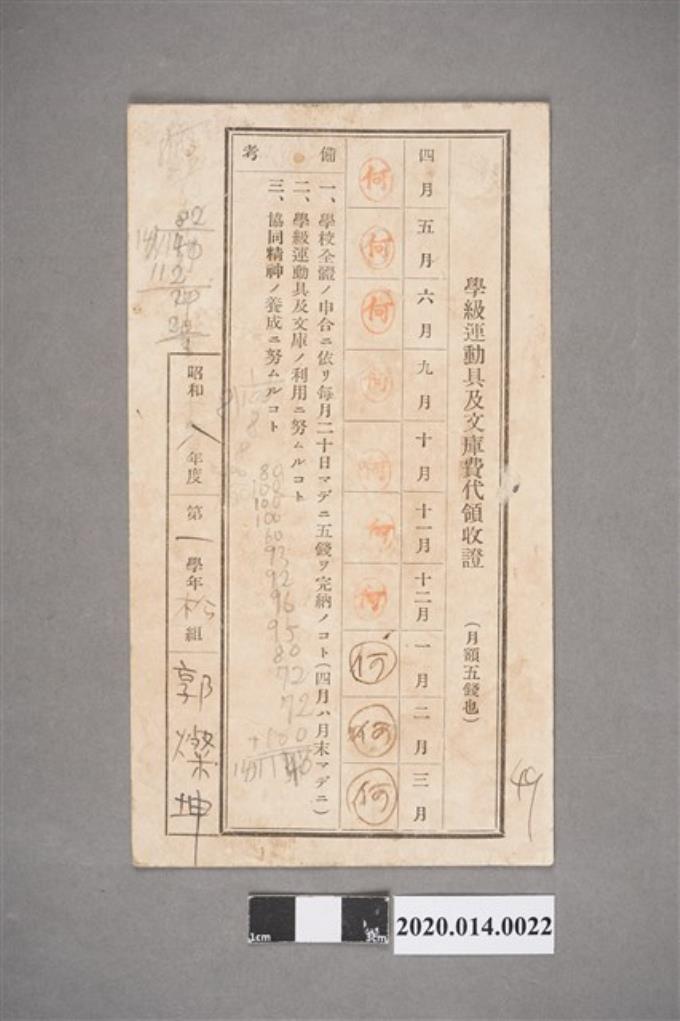 學級運動具及文庫費代領收證 (月額五錢也)
四月 五月 六月 九月 十月 十一月 十二月 一月 二月 三月
何 何 何 何 何 何 何 何 何 何
備考
一、學校全體ノ申合ニ依リ每月二十日マデニ五錢ヲ完納ノコト(四月ハ月末マデニ)
二、學級運動具及文庫ノ利用ニ努ムルコト
三、協同精神ノ養成ニ努ムルコト
昭和八年度 第一學年 松組 郭燦坤
49
82
112
80
100
100
100
60
93
92
96
95
80
72
72
1cm
2020.014.0022